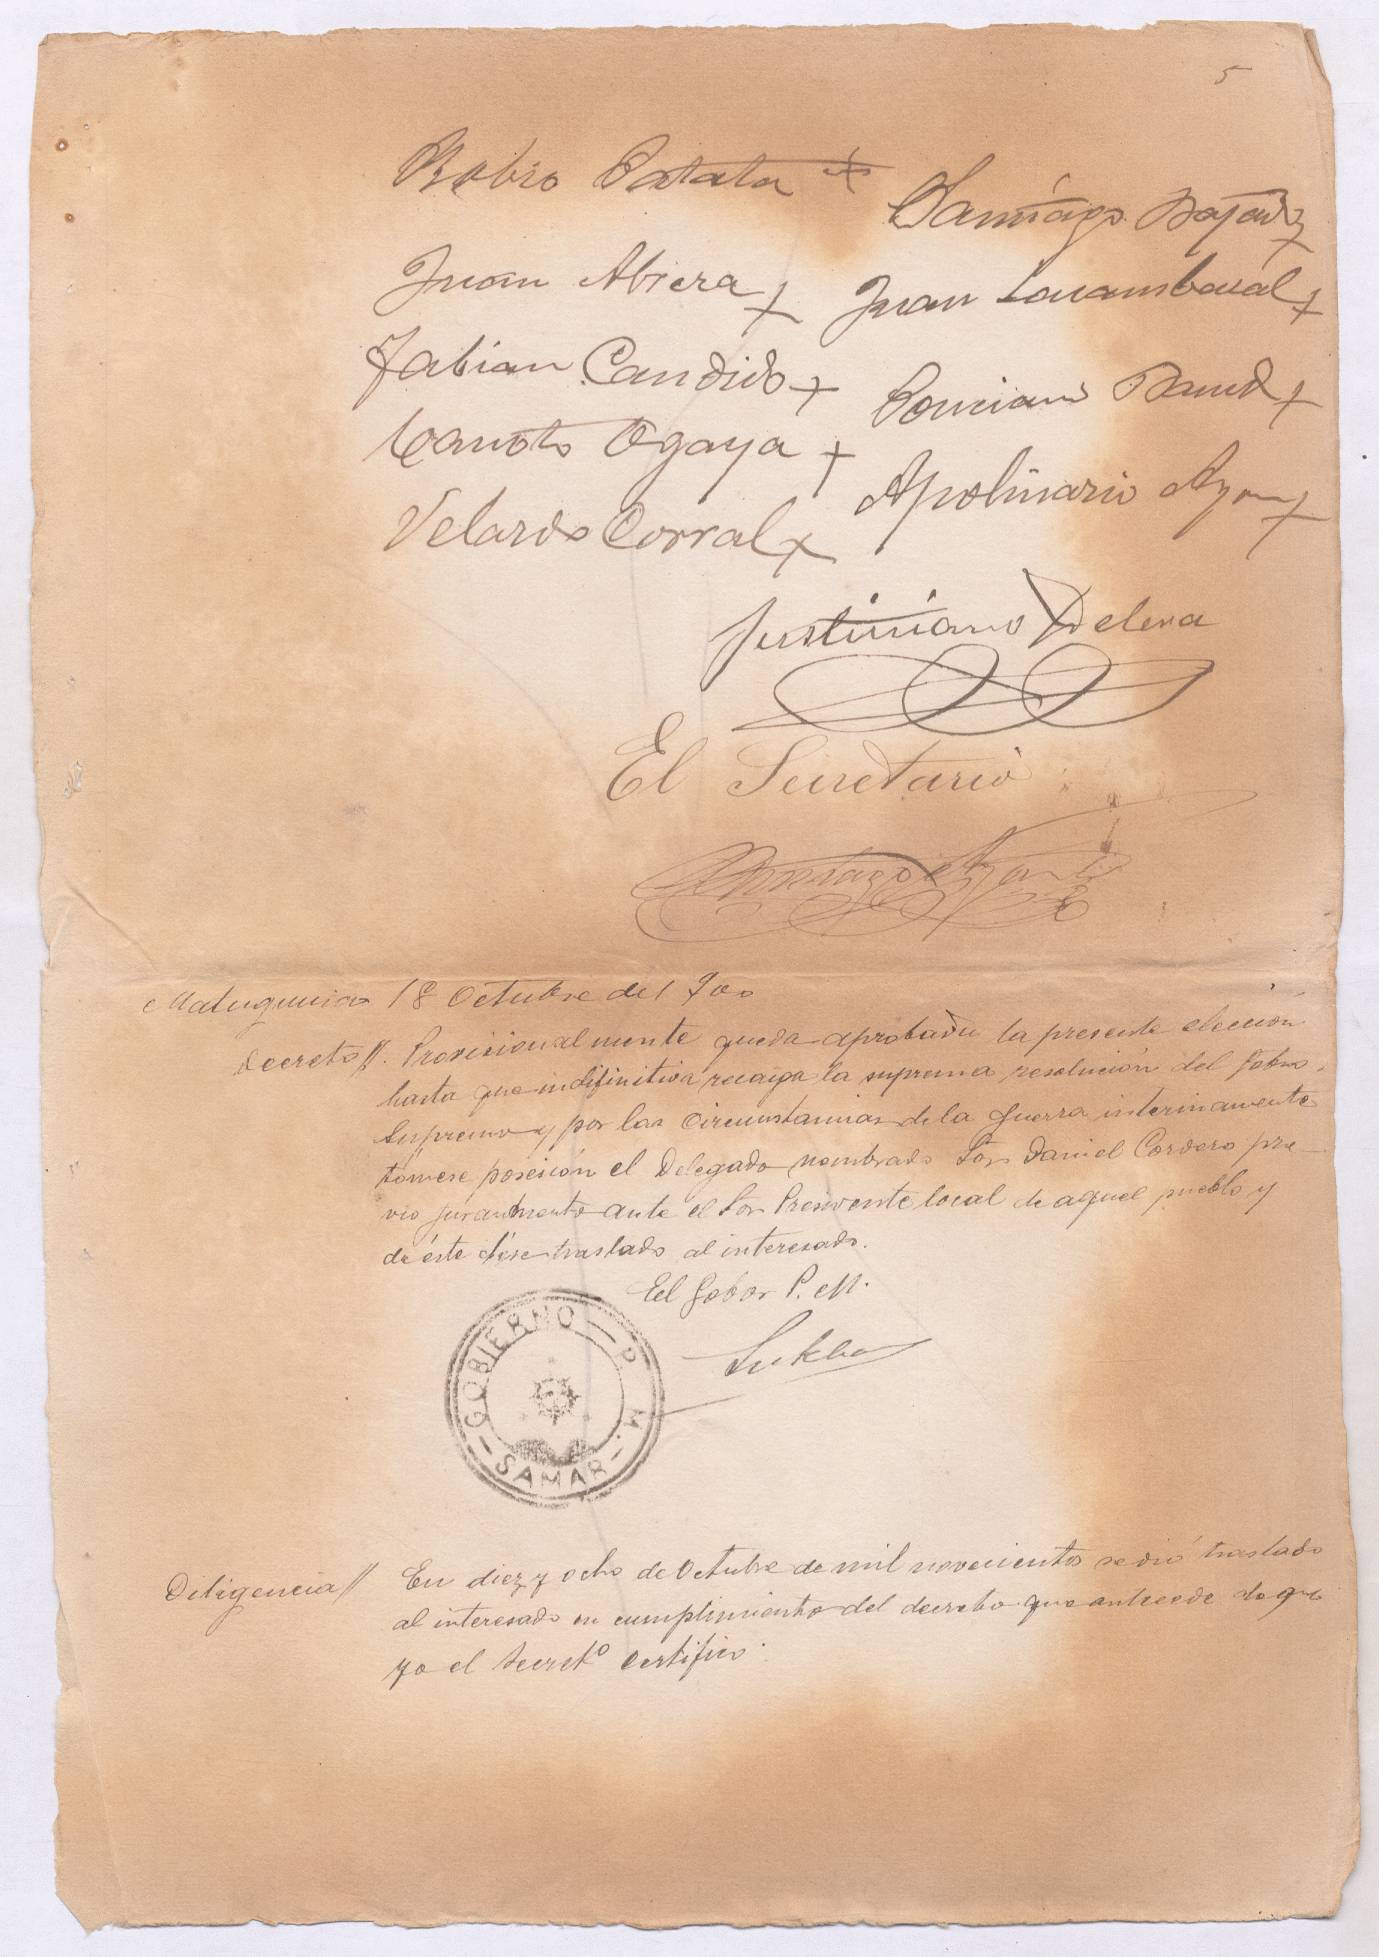 5
Catata
Santiago
Juan Abiera
Juan Lacambacal
Fabian Candido
Ponciano
Canoto Ogaya
Apolinario
Velardo Corral
Justiniano Delena
El Secretario
18 Octubre del 900
Decreto//. Provisionalmente queda aprobada la presente elección
hasta que indifinitiva recaiga la suprema resolución del Gobno.
Supremo y por las circunstancias de la guerra interinamente
tómese posesión el Delegado nombrado Sor. Daniel Cordero pre-
vio juramento ante el Sor Presidente local de aquel pueblo y
de éste dése traslado al interesado.
El Gobor P. M.
Lukban
GOBIERNO P. M.
SAMAR
Diligencia// En diez y ocho de Octubre de mil novecientos se dió traslado
al interesado en cumplimiento del decreto que antecede de que
yo el Secret.o certifico.